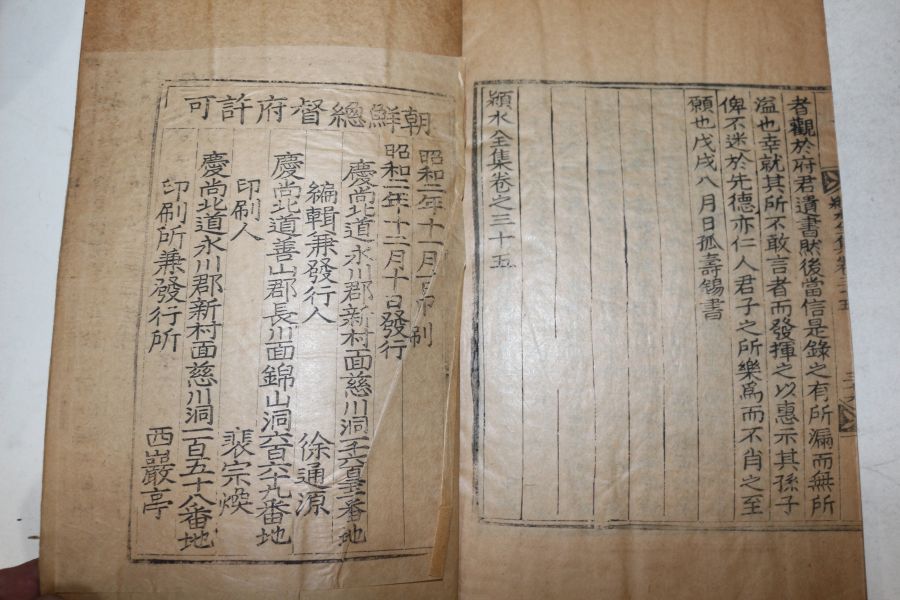 者觀於府君遺書然後當信是錄之有所漏而無所
溢也幸就其所不敢言者而發揮之以惠示其孫子
俾不迷於先德亦仁人君子之所樂爲而不肖之至
願也戊戌八月日孤壽錫書
潁水全集卷之三十五
朝鮮總督府許可
昭和二年十一月 印刷
昭和二年十二月十日發行
慶尚北道永川郡新村面慈川洞 番地
編輯兼發行人 徐通源
慶尚北道善山郡長川面錦山洞六百六十九番地
印刷人 裵宗煥
慶尚北道永川郡新村面慈川洞一百五十八番地
印刷所兼發行所 西巖亭